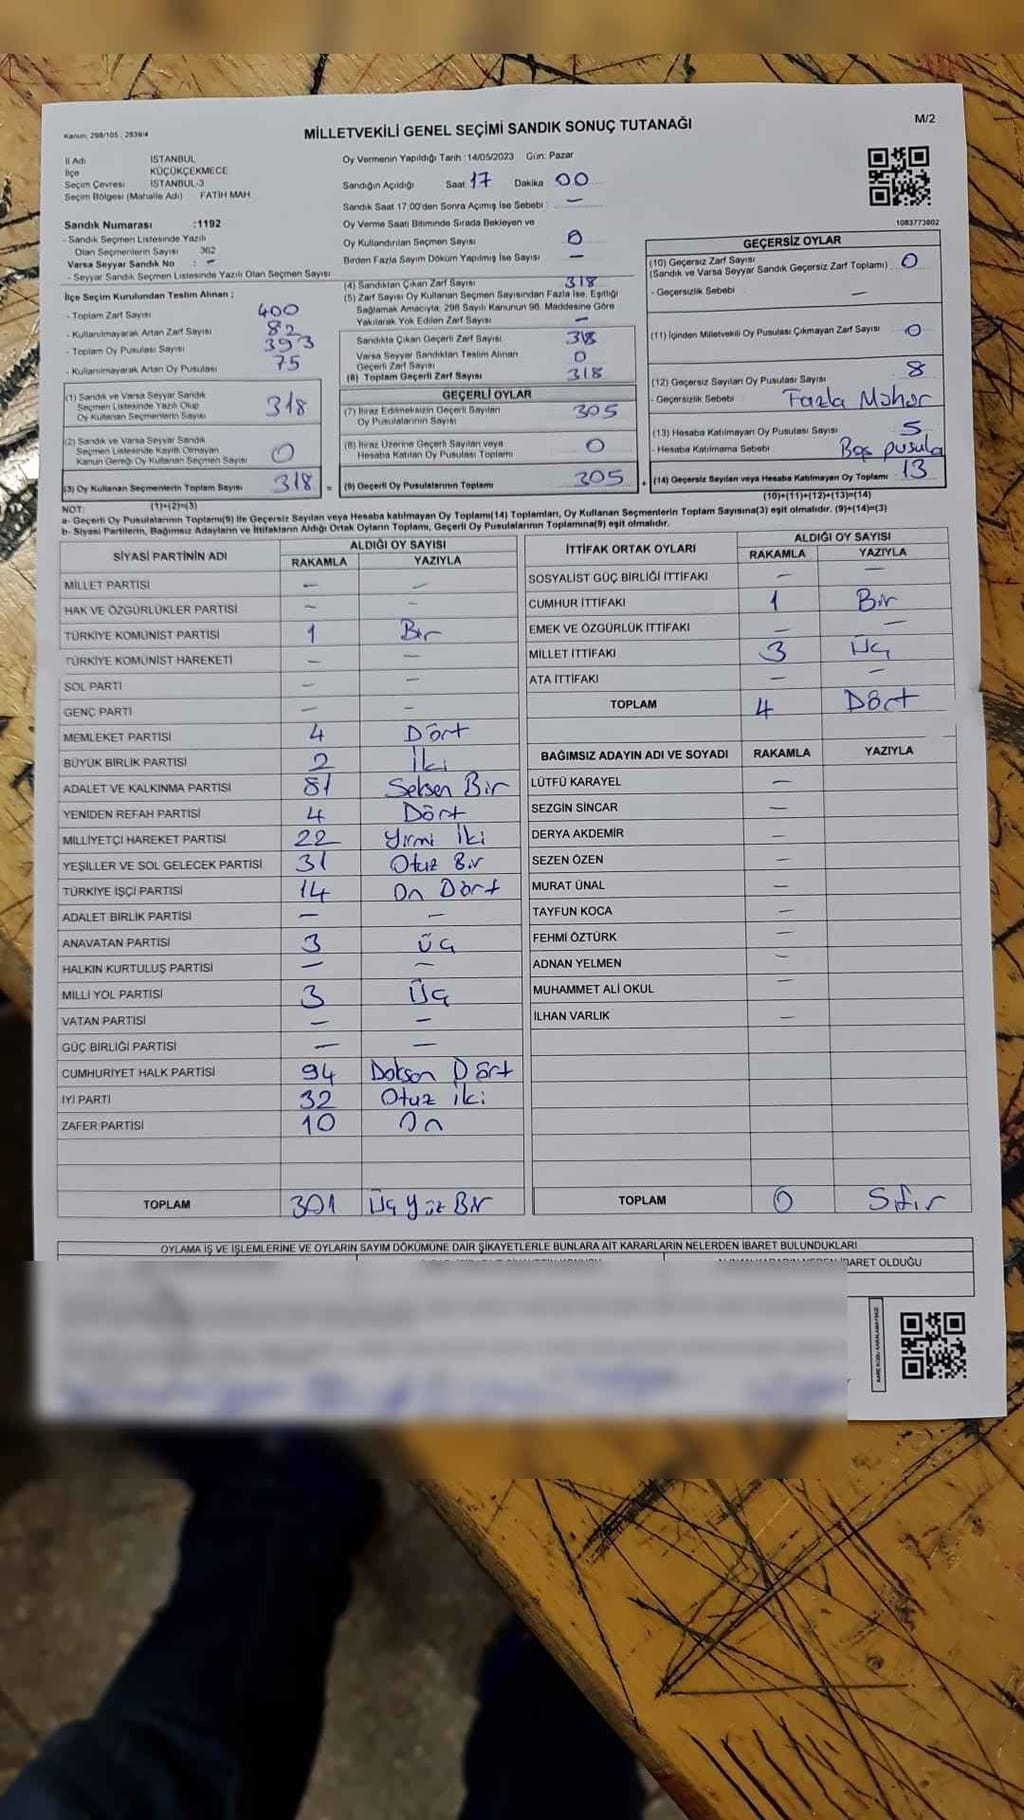 Kanun; 298/105 , 2839/4
MİLLETVEKİLİ GENEL SEÇİMİ SANDIK SONUÇ TUTANAĞI
M/2
İl Adı İSTANBUL
İlçe KÜÇÜKÇEKMECE
Seçim Çevresi İSTANBUL-3
Seçim Bölgesi (Mahalle Adı) FATİH MAH
Sandık Numarası :1192
- Sandık Seçmen Listesinde Yazılı
Olan Seçmenlerin Sayısı 362
Varsa Seyyar Sandık No : -
- Seyyar Sandık Seçmen Listesinde Yazılı Olan Seçmen Sayısı
İlçe Seçim Kurulundan Teslim Alınan ;
- Toplam Zarf Sayısı 400
- Kullanılmayarak Artan Zarf Sayısı 82
- Toplam Oy Pusulası Sayısı 393
- Kullanılmayarak Artan Oy Pusulası 75
(1) Sandık ve Varsa Seyyar Sandık
Seçmen Listesinde Yazılı Olup
Oy Kullanan Seçmenlerin Sayısı 318
(2) Sandık ve Varsa Seyyar Sandık
Seçmen Listesinde Kayıtlı Olmayan
Kanun Gereği Oy Kullanan Seçmen Sayısı 0
(3) Oy Kullanan Seçmenlerin Toplam Sayısı 318 =
(1)+(2)=(3)
Oy Vermenin Yapıldığı Tarih :14/05/2023 Gün: Pazar
Sandığın Açıldığı Saat 17 Dakika 00
Sandık Saat 17.00'den Sonra Açımış İse Sebebi : -
Oy Verme Saati Bitiminde Sırada Bekleyen ve
Oy Kullandırılan Seçmen Sayısı 0
Birden Fazla Sayım Döküm Yapılmış İse Sayısı -
(4) Sandıktan Çıkan Zarf Sayısı 318
(5) Zarf Sayısı Oy Kullanan Seçmen Sayısından Fazla İse, Eşitliği
Sağlamak Amacıyla, 298 Sayılı Kanunun 98. Maddesine Göre
Yakılarak Yok Edilen Zarf Sayısı -
Sandıkta Çıkan Geçerli Zarf Sayısı 318
Varsa Seyyar Sandıktan Teslim Alınan
Geçerli Zarf Sayısı 0
(6) Toplam Geçerli Zarf Sayısı 318
GEÇERLİ OYLAR
(7) İtiraz Edilmeksizin Geçerli Sayılan
Oy Pusulalarının Sayısı 305
(8) İtiraz Üzerine Geçerli Sayılan veya
Hesaba Katılan Oy Pusulası Toplamı 0
(9) Geçerli Oy Pusulalarının Toplamı 305 +
1083773902
GEÇERSİZ OYLAR
(10) Geçersiz Zarf Sayısı 0
(Sandık ve Varsa Seyyar Sandık Geçersiz Zarf Toplamı)
- Geçersizlik Sebebi -
(11) İçinden Milletvekili Oy Pusulası Çıkmayan Zarf Sayısı 0
(12) Geçersiz Sayılan Oy Pusulası Sayısı 8
- Geçersizlik Sebebi Fazla Mühür
(13) Hesaba Katılmayan Oy Pusulası Sayısı 5
- Hesaba Katılmama Sebebi Boş pusula
(14) Geçersiz Sayılan veya Hesaba Katılmayan Oy Toplamı 13
(10)+(11)+(12)+(13)=(14)
NOT:
a- Geçerli Oy Pusulalarının Toplamı(9) ile Geçersiz Sayılan veya Hesaba katılmayan Oy Toplamı(14) Toplamları, Oy Kullanan Seçmenlerin Toplam Sayısına(3) eşit olmalıdır. (9)+(14)=(3)
b- Siyasi Partilerin, Bağımsız Adayların ve İttifakların Aldığı Ortak Oyların Toplamı, Geçerli Oy Pusulalarının Toplamına(9) eşit olmalıdır.
SİYASİ PARTİNİN ADI ALDIĞI OY SAYISI
RAKAMLA YAZIYLA
MİLLET PARTİSİ - -
HAK VE ÖZGÜRLÜKLER PARTİSİ - -
TÜRKİYE KOMÜNİST PARTİSİ 1 Bir
TÜRKİYE KOMÜNİST HAREKETİ - -
SOL PARTİ - -
GENÇ PARTİ - -
MEMLEKET PARTİSİ 4 Dört
BÜYÜK BİRLİK PARTİSİ 2 İki
ADALET VE KALKINMA PARTİSİ 81 Seksen Bir
YENİDEN REFAH PARTİSİ 4 Dört
MİLLİYETÇİ HAREKET PARTİSİ 22 Yirmi İki
YEŞİLLER VE SOL GELECEK PARTİSİ 31 Otuz Bir
TÜRKİYE İŞÇİ PARTİSİ 14 On Dört
ADALET BİRLİK PARTİSİ - -
ANAVATAN PARTİSİ 3 Üç
HALKIN KURTULUŞ PARTİSİ - -
MİLLİ YOL PARTİSİ 3 Üç
VATAN PARTİSİ - -
GÜÇ BİRLİĞİ PARTİSİ - -
CUMHURİYET HALK PARTİSİ 94 Doksan Dört
İYİ PARTİ 32 Otuz iki
ZAFER PARTİSİ 10 On
TOPLAM 301 Üç Yüz Bir
İTTİFAK ORTAK OYLARI ALDIĞI OY SAYISI
RAKAMLA YAZIYLA
SOSYALİST GÜÇ BİRLİĞİ İTTİFAKI - -
CUMHUR İTTİFAKI 1 Bir
EMEK VE ÖZGÜRLÜK İTTİFAKI - -
MİLLET İTTİFAKI 3 Üç
ATA İTTİFAKI - -
TOPLAM 4 Dört
BAĞIMSIZ ADAYIN ADI VE SOYADI RAKAMLA YAZIYLA
LÜTFÜ KARAYEL -
SEZGİN SİNCAR -
DERYA AKDEMİR -
SEZEN ÖZEN -
MURAT ÜNAL -
TAYFUN KOCA -
FEHMİ ÖZTÜRK -
ADNAN YELMEN -
MUHAMMET ALİ OKUL -
İLHAN VARLIK -
TOPLAM 0 Sıfır
OYLAMA İŞ VE İŞLEMLERİNE VE OYLARIN SAYIM DÖKÜMÜNE DAİR ŞİKAYETLERLE BUNLARA AİT KARARLARIN NELERDEN İBARET BULUNDUKLARI
İBARET OLDUĞU